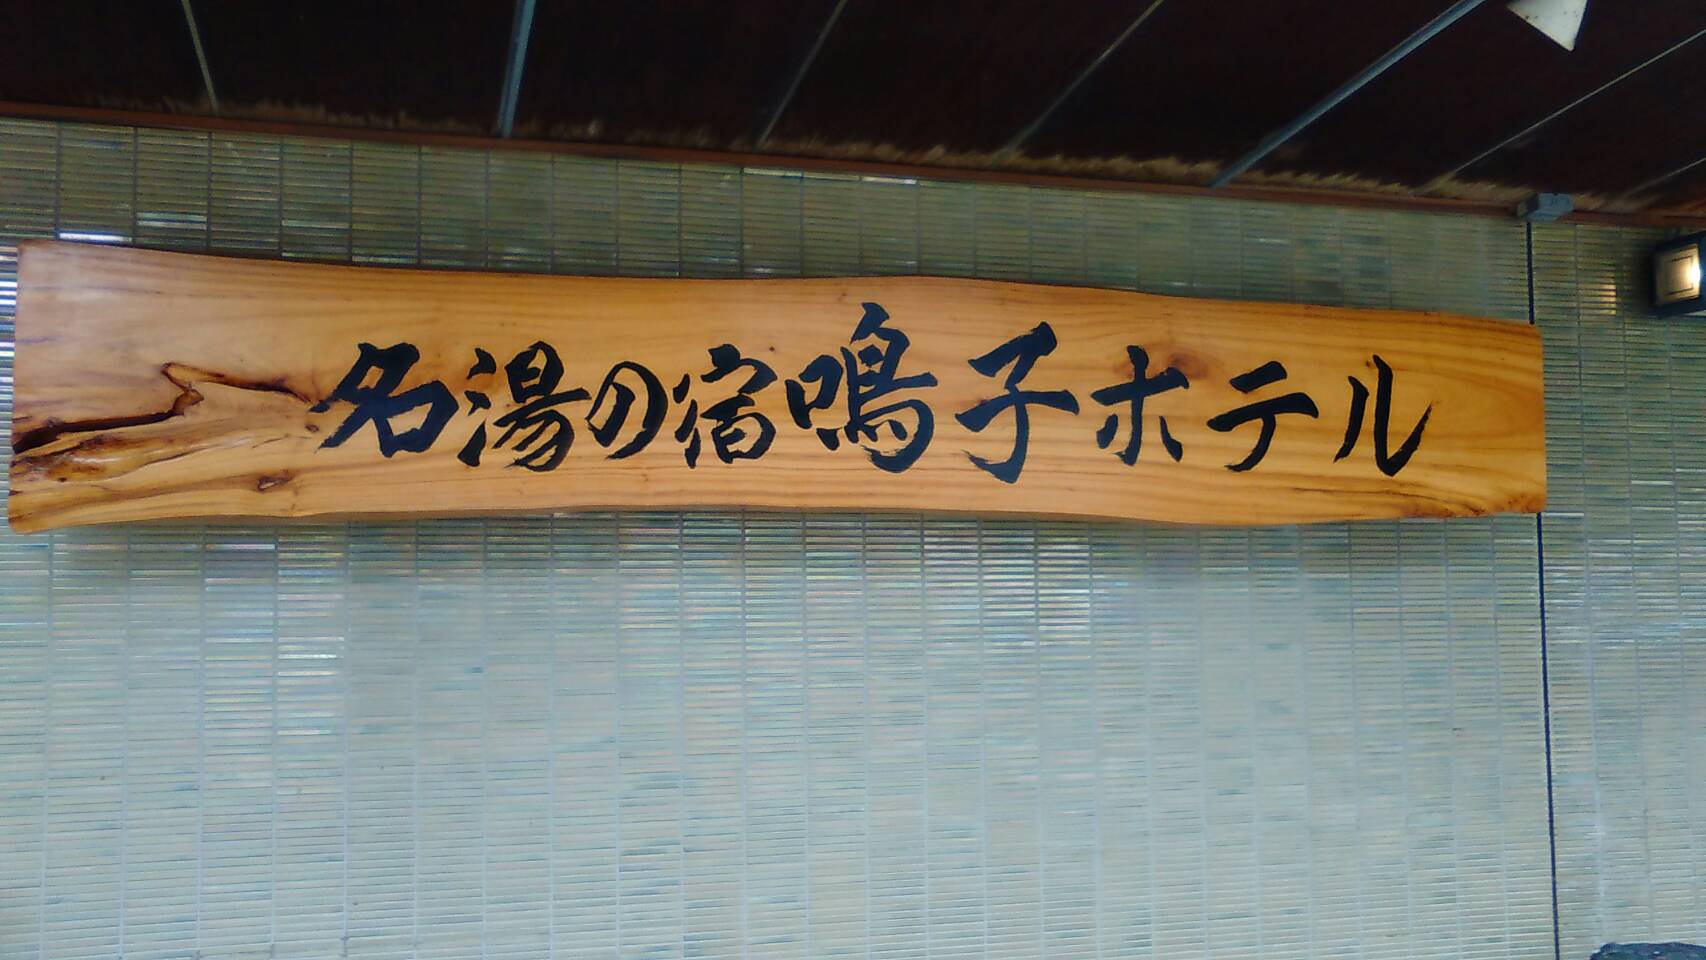 名湯の宿鳴子ホテル